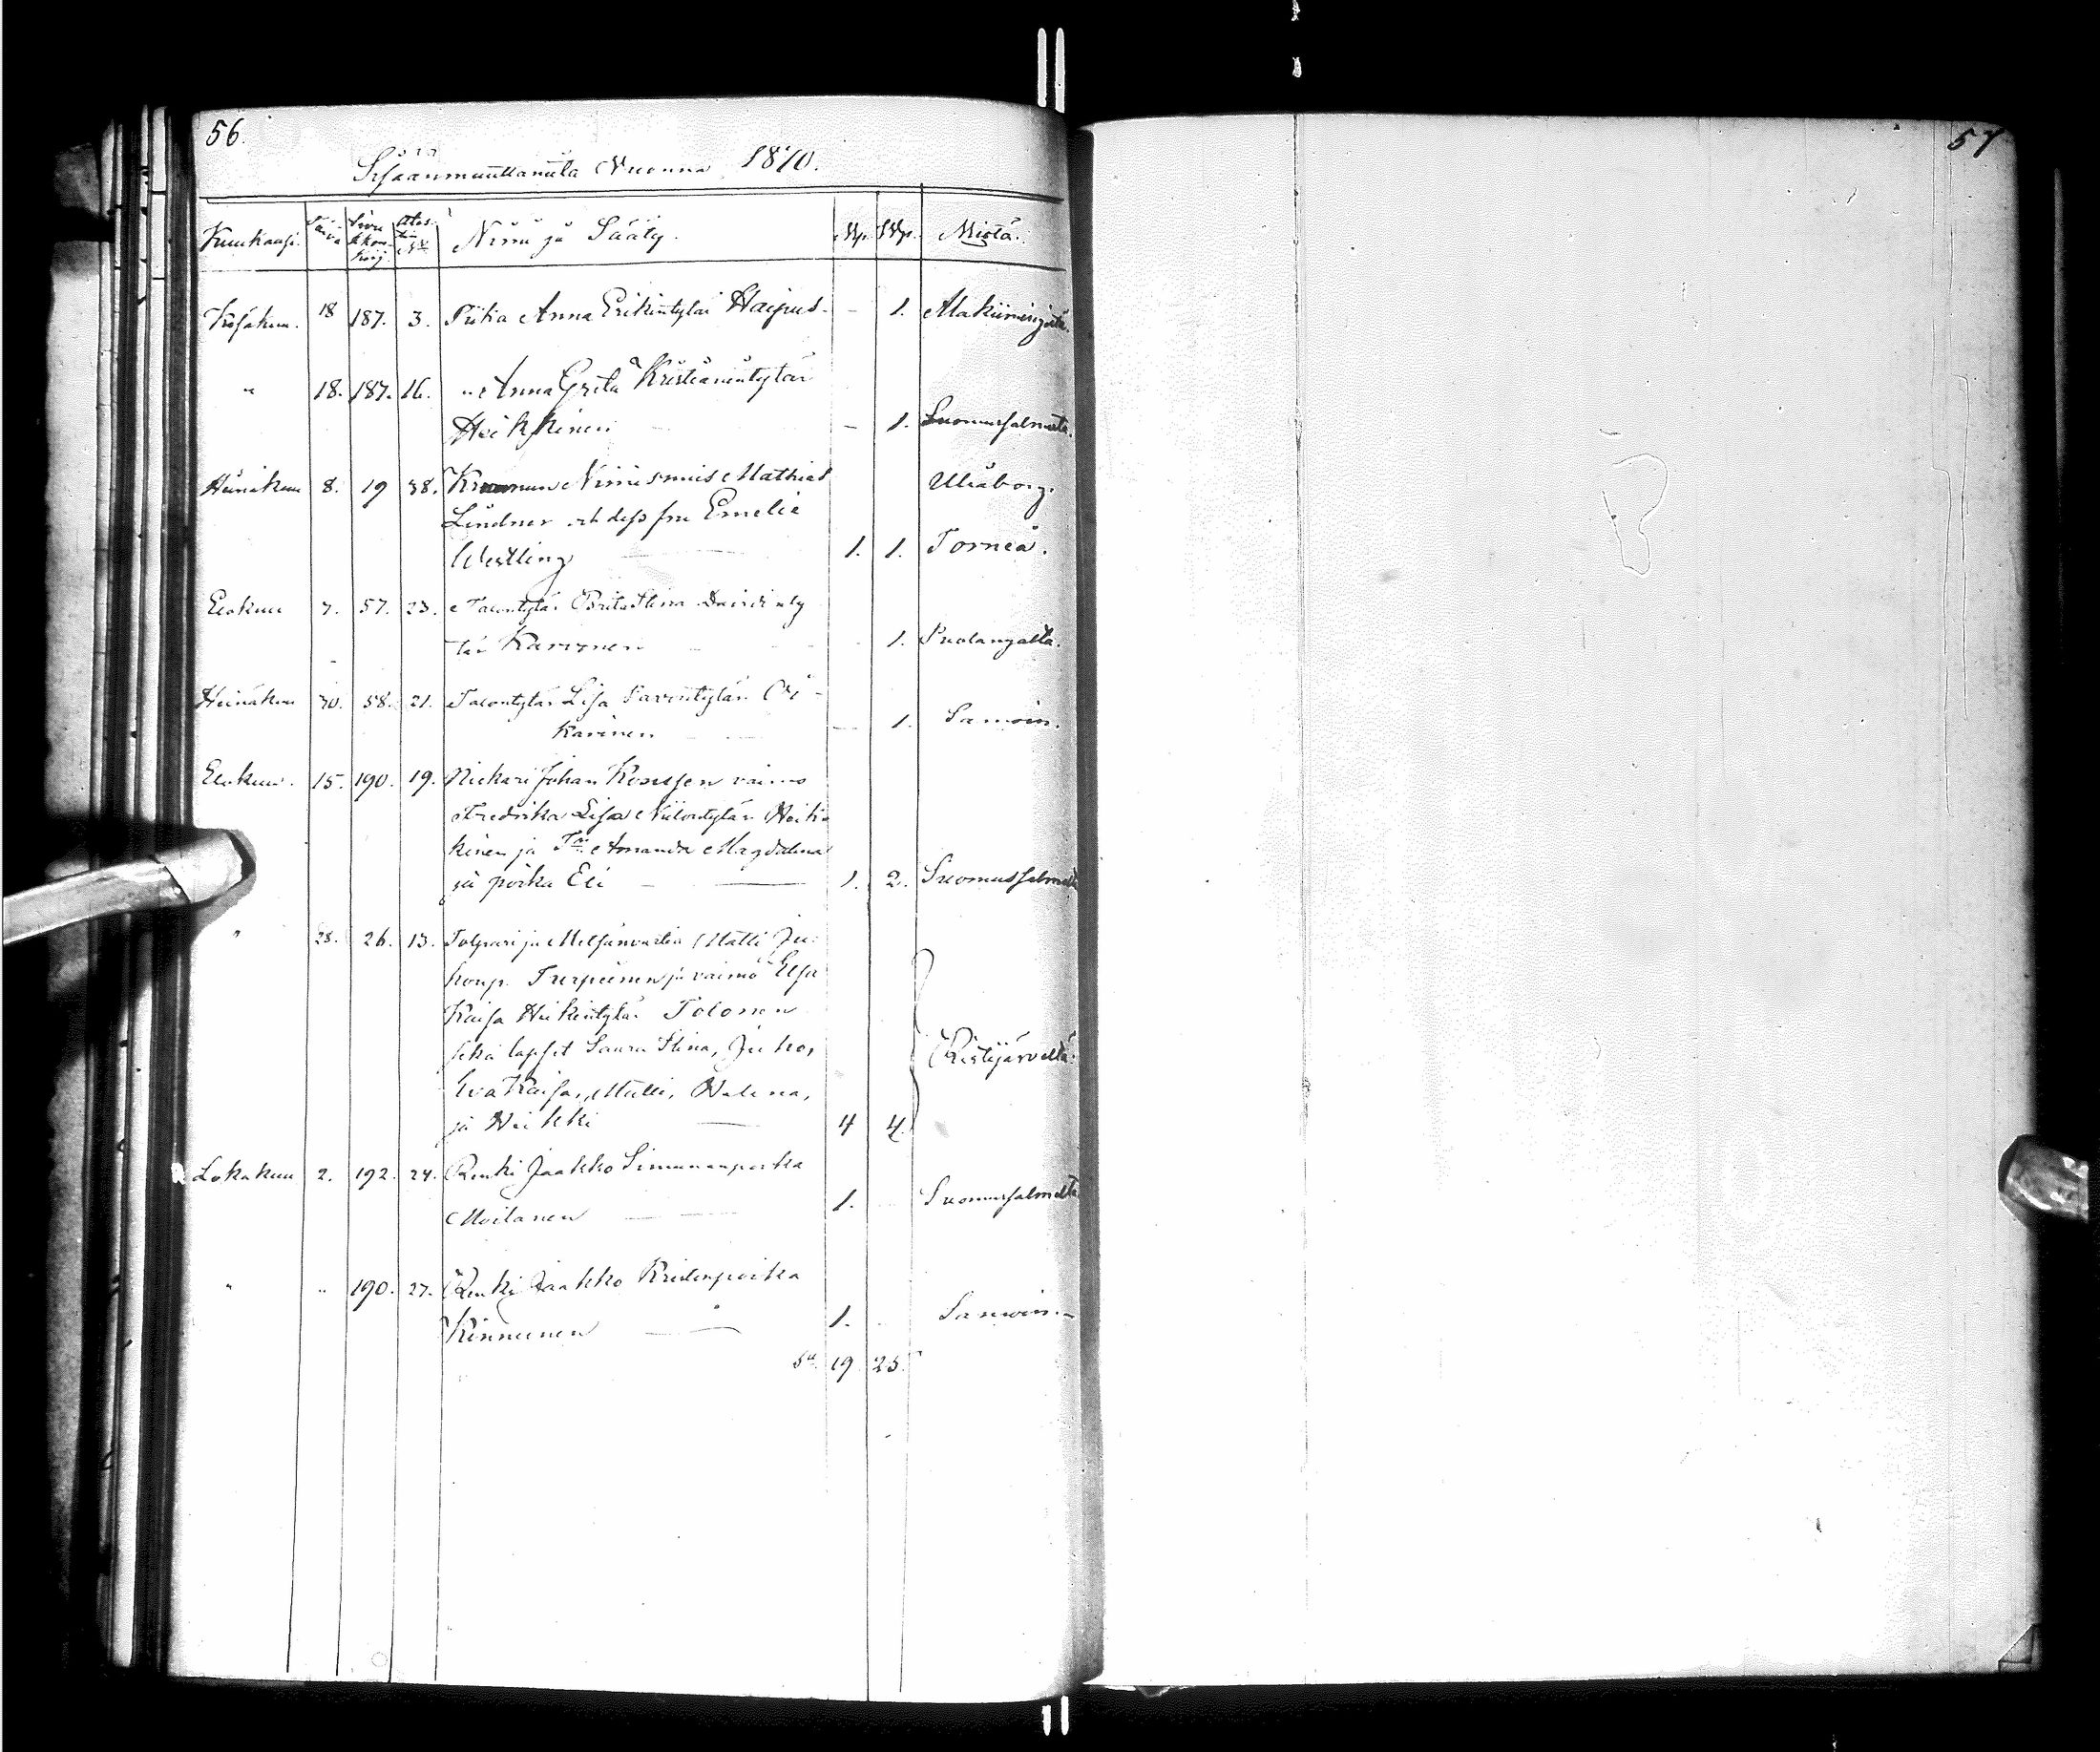 56.
57
Sisäänmuuttaneita Vuonna 1870.
Kuukausi. Päivä Sivu Rkon kirj. Atestin No Nimi ja Sääty. Mp. Wp. Mistä.
Kesäkuu. 18 187. 3. Piika Anna Erikintytär Haipus - 1. Alakiimingistä.
" 18. 187. 16. " Anna Greta Kristianintytär
Heikkinen - 1. Suomussalmelta.
Heinäkuu 8. 19 38. Kruunun Nimismies Mathias Uleåborg.
Lindner och dess fru Emelie
Westling 1. 1. Torneå.
Elokuu 7. 57. 23. Talontytär Brita Stina Davidinty
tär Karvonen 1. Puolangalta.
Heinäkuu 30. 58. 21. Talontytär Lisa Paavontytär Oi-
karinen - 1. Samoin.
Elokuu. 15. 190. 19. Nikkari Johan vaimo
Fredrika Lisa Niilontytär Heik
kinen ja Tr Amanda Magdalena
ja poika Eli 1. 2. Suomussalmelta
" 28. 26. 13. Torpari ja Metsänvartia Matti Ju-
honp. Turpeinen ja vaimo Elsa
Kaisa Heikintytär Tolonen
sekä lapset Saara Stina, Juho,
Eva Kaisa, Matti, Helena, Ristijärveltä.
ja Heikki 4 4.
Lokakuu 2. 192. 24. Renki Jaakko Simunanpoika
Moilanen 1. Suomussalmelta
" " 190. 27. Renki Jaakko
Kinnunen 1. Samoin.
Sa 19 25.